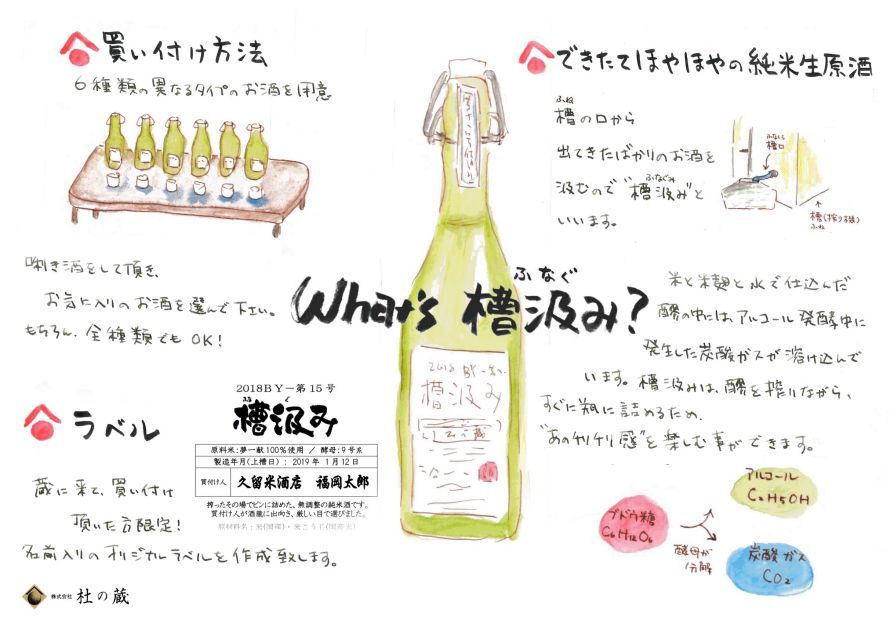 買い付け方法
6種類の異なるタイプのお酒を用意
唎き酒をして頂き、
お気に入りのお酒を選んで下さい。
もちろん、全種類でもOK!
ラベル
蔵に来て、買い付け
頂いた方限定!
名前入りのオリジナルラベルを作成致します。
株式会社 杜の蔵
2018BY-第15号
ふなく
槽汲み
原料米:夢一献100%使用 / 酵母:9号系
製造年月(上槽日): 2019年 1月12日
買付け人 久留米酒店 福岡太郎
搾ったその場でビンに詰めた、無調整の純米酒です。
買付け人が酒蔵に出向き、厳しい目で選びました。
原材料名:米(国産)・米こうじ(国産米)
ふなぐ
What's 槽汲み?
2018BY-第
槽汲み
できたてほやほやの純米生原酒
ふね
槽の口から
出てきたばかりのお酒を
ふなぐみ
汲むので"槽汲み"と
いいます。
ふなくち
槽口
槽(搾り機)
ふね
米と米麹と水で仕込んだ
醪の中には、アルコール発酵中に
発生した炭酸ガスが溶け込んで
います。槽汲みは、醪を搾りながら、
すぐに瓶に詰めるため、
"あのチリチリ感"を楽しむ事ができます。
ブドウ糖
C6H12O6
酵母が
分解
アルコール
C2H5OH
炭酸ガス
CO2